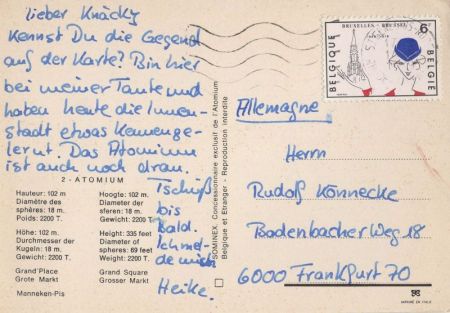 lieber Knäcky
Kennst Du die Gegend
auf der Karte? Bin hier
bei meiner Tante und
haben heute die Innen-
stadt etwas kennenge-
lernt. Das Atomium
ist auch noch dran.
Tschüß
bis
bald.
Ich mel-
de mich
Heike.
2 - ATOMIUM
Hauteur: 102 m.
Diamètre des
sphères: 18 m.
Poids: 2200 T.
Hoogte: 102 m.
Diameter der
sferen: 18 m.
Gewicht: 2200 T.
Höhe: 102 m.
Durchmesser der
Kugeln: 18 m.
Gewicht: 2200 T.
Height: 335 feet
Diameter of
spheres: 69 feet
Weight: 2200 T.
Grand'Place
Grote Markt
Grand Square
Grosser Markt
Manneken-Pis
SOMINEX, Concessionnaire exclusif de l'Atomium
Belgique et Etranger - Reproduction interdite
BRUXELLES - BRUSSEL
6F
BELGIQUE
BELGIE
Allemagne
Herrn
Rudolf Könnecke
Badenbacher Weg 18
6000 Frankfurt 70
IMPRIMÉ EN ITALIE